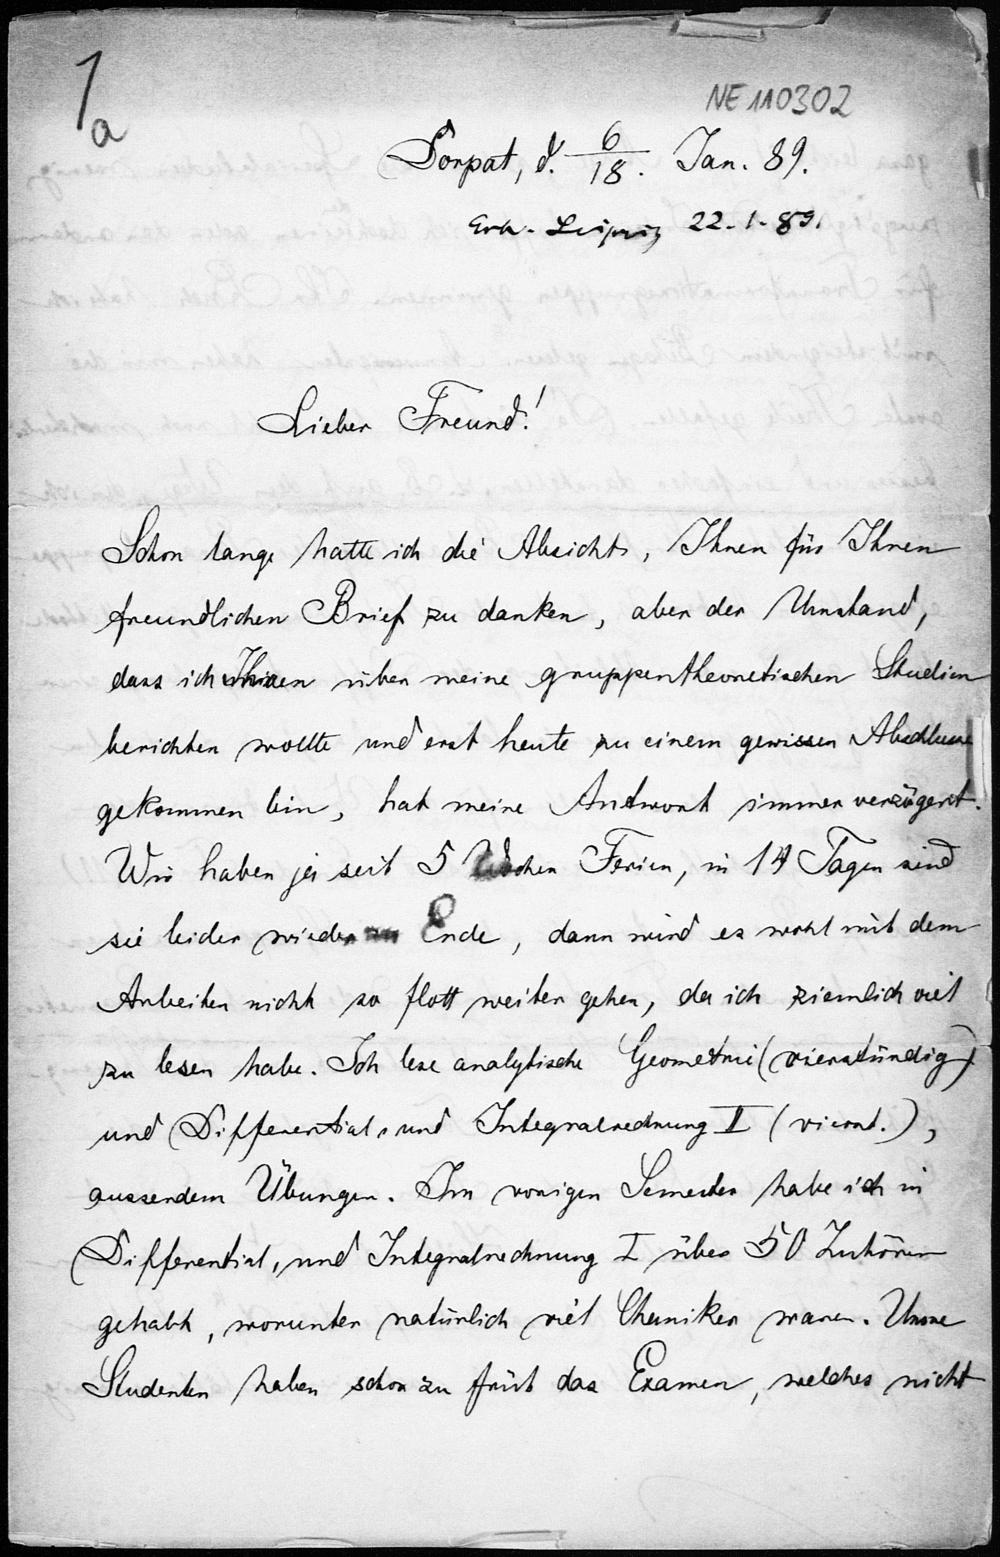 1a
NE 110302
Dorpat, d. 6/18. Jan. 89.
Erh. Leipzig 22.1.89.
Lieber Freund!
Schon lange hatte ich die Absicht, Ihnen für Ihren
freundlichen Brief zu danken, aber der Umstand,
dass ich Ihnen über meine gruppentheoretischen Studien
berichten wollte und erst heute zu einem gewissen Abschlusse
gekommen bin, hat meine Antwort immer verzögert.
Wir haben ja seit 5 Wochen Ferien, in 14 Tagen sind
sie leider wieder zu Ende, dann wird es wohl mit dem
Arbeiten nicht so flott weiter gehen, da ich ziemlich viel
zu lesen habe. Ich lese analytische Geometrie (vierstündig)
und Differential- und Integralrechnung II (vierst.),
ausserdem Übungen. Im vorigen Semester habe ich in
Differential- und Integralrechnung I über 50 Zuhörer
gehabt, worunter natürlich viel Chemiker waren. Unsre
Studenten haben schon zu früh das Examen, welches nicht